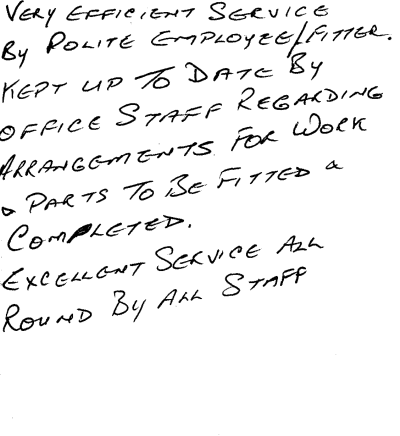 VERY EFFICIENT SERVICE
BY POLITE EMPLOYEE/FITTER.
KEPT UP TO DATE BY
OFFICE STAFF REGARDING
ARRANGEMENTS FOR WORK
& PARTS TO BE FITTED &
COMPLETED.
EXCELLENT SERVICE ALL
ROUND BY ALL STAFF